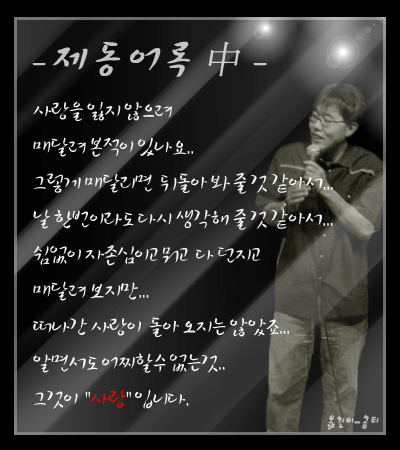 -제동어록 中-
사랑을 잃지 않으려
매달려 본적이 있나요..
그렇게 매달리면 뒤돌아 봐 줄것 같아서...
날 한번이라도 다시 생각해 줄것 같아서...
쉼없이 자존심이고 뭐고 다 던지고
매달려 보지만...
떠나간 사랑이 돌아 오지는 않았죠...
알면서도 어찌할수 없는것..
그것이 "사랑" 입니다.